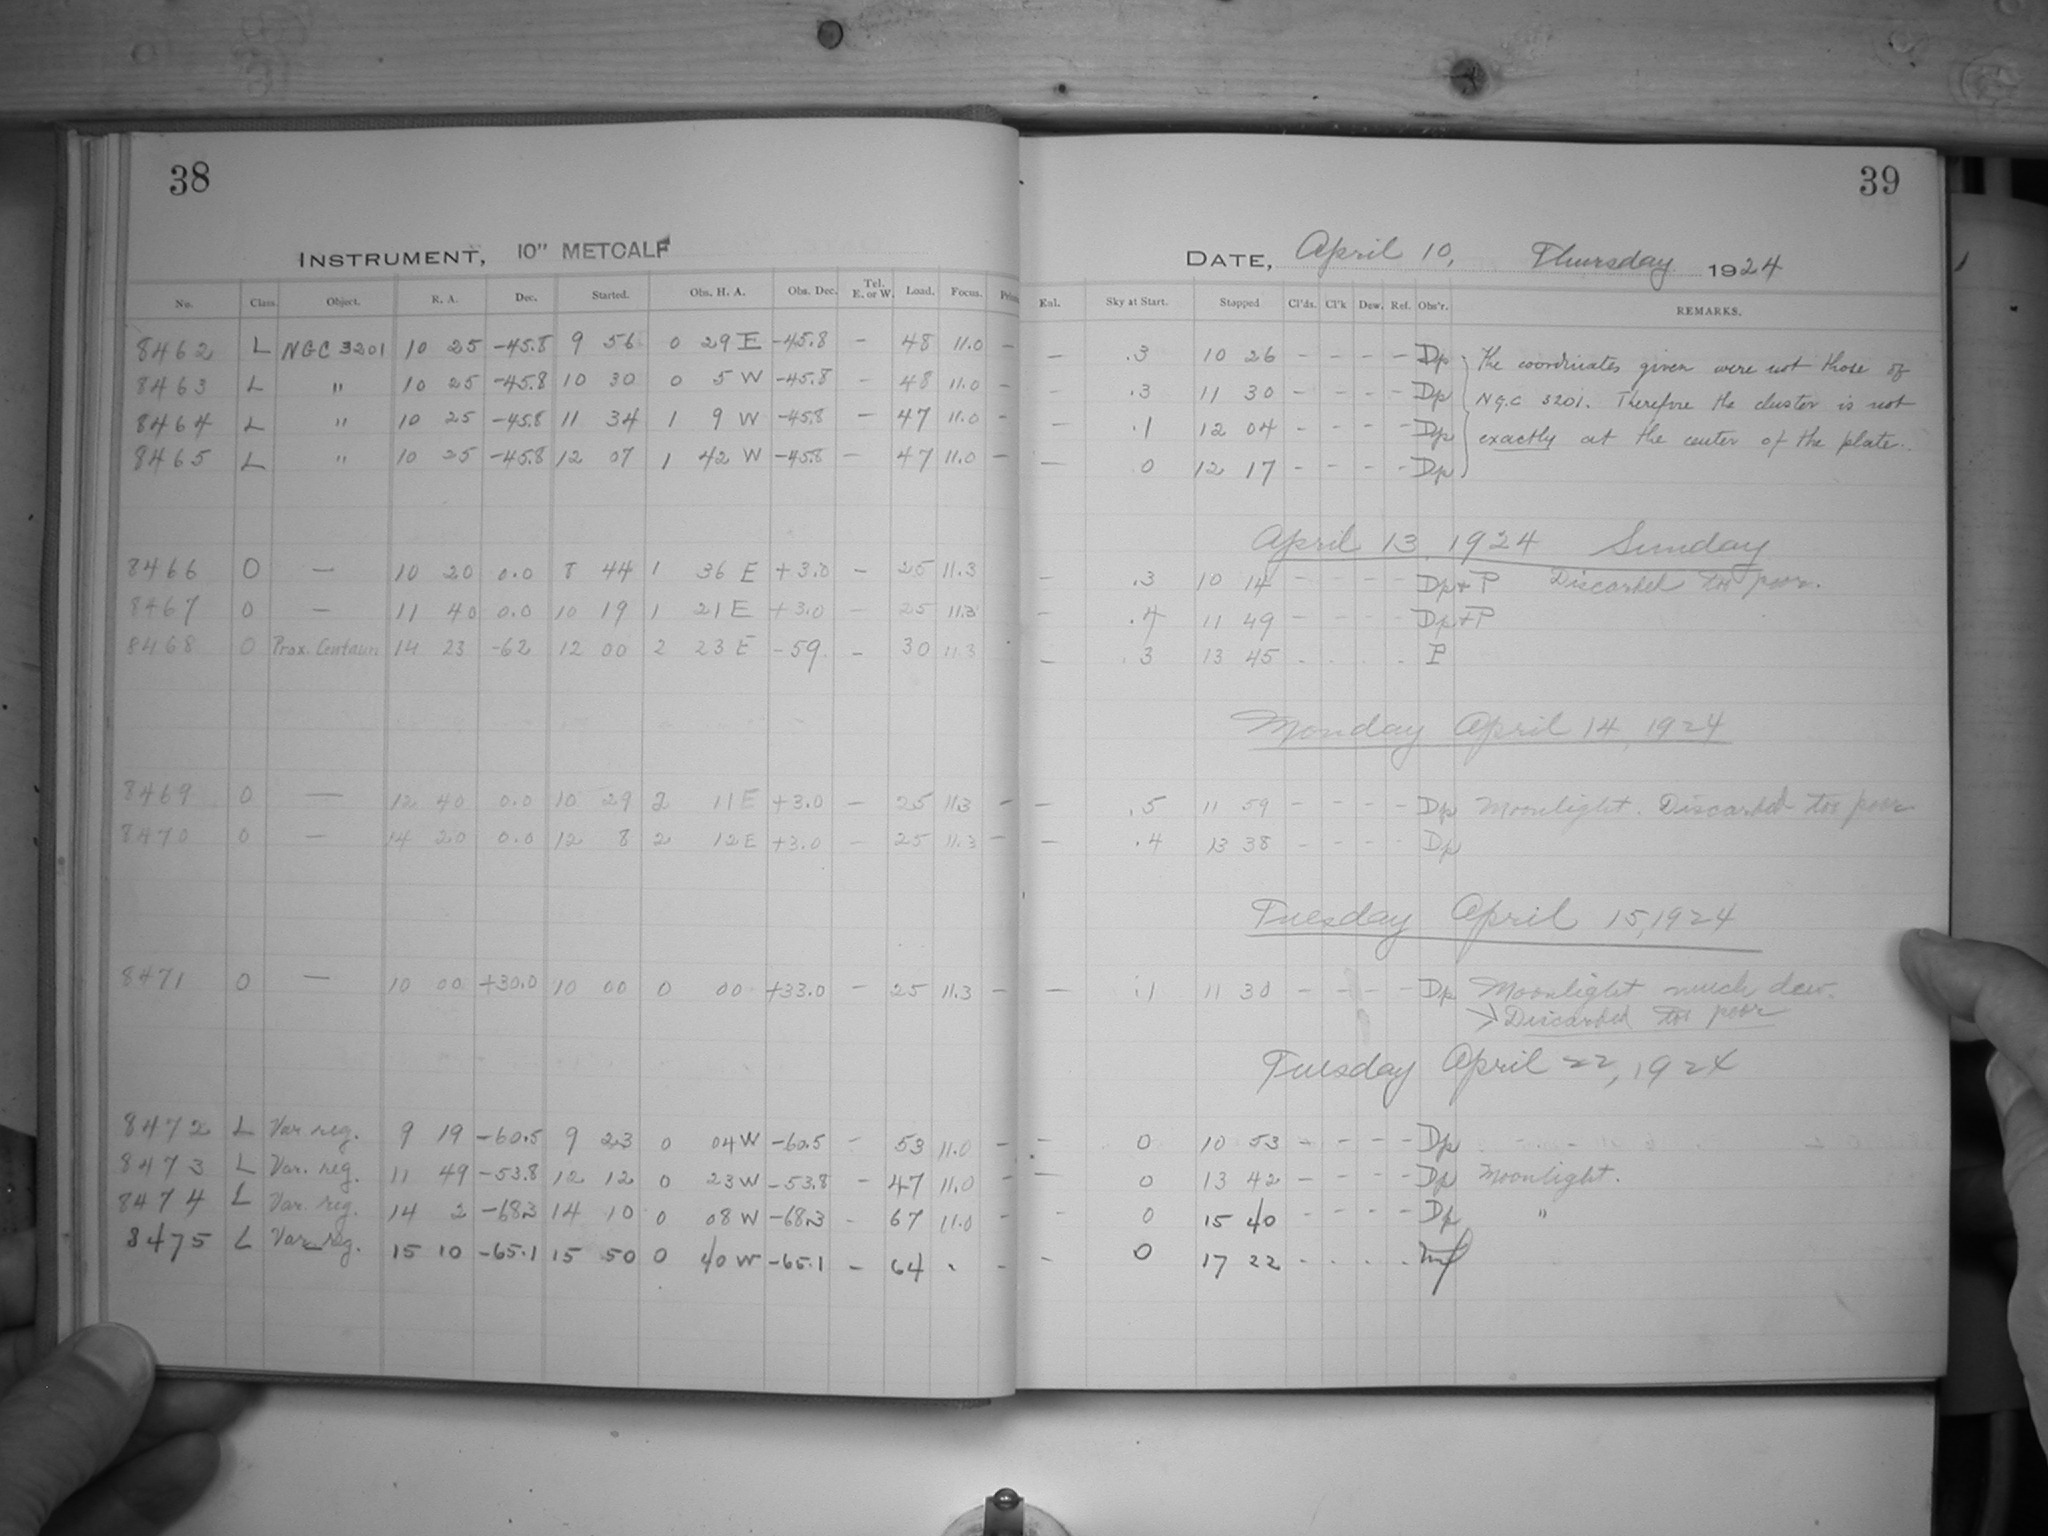 38
39
INSTRUMENT, 10" METCALF
DATE, April 10, Thursday 1924
No. Class. Object. R. A. Dec. Started. Obs. H. A. Obs. Dec. Tel. E. or W. Load. Focus. Enl. Sky at Start. Stopped Cl'ds. Cl'k Dew. Ref. Obs'r. REMARKS.
8462 L NGC 3201 10 25 -45.8 9 56 0 29 E -45.8 - 48 11.0 - - .3 10 26 - - - - Dp The coordinates given were not those of
8463 L " 10 25 -45.8 10 30 0 5 W -45.8 - 48 11.0 - - .3 11 30 - - - - Dp NGC 3201. Therefore the cluster is not
8464 L " 10 25 -45.8 11 34 1 9 W -45.8 - 47 11.0 - - .1 12 04 - - - - Dp exactly at the center of the plate.
8465 L " 10 25 -45.8 12 07 1 42 W -45.8 - 47 11.0 - - 0 12 17 - - - - Dp
April 13, 1924 Sunday
8466 O - 10 20 0.0 8 44 1 36 E +3.0 - 25 11.3 - .3 10 14 - - - - Dp+P Discarded too poor.
8467 O - 11 40 0.0 10 19 1 21 E +3.0 - 25 11.3 - .4 11 49 - - - - Dp+P
8468 O Prox. Centauri 14 23 -62 12 00 2 23 E -59 - 30 11.3 - .3 13 45 - - - - P
Monday April 14, 1924
8469 O - 12 40 0.0 10 29 2 11 E +3.0 - 25 11.3 - - .5 11 59 - - - - Dp Moonlight. Discarded too poor
8470 O - 14 20 0.0 12 8 2 12 E +3.0 - 25 11.3 - - .4 13 38 - - - - Dp
Tuesday April 15, 1924
8471 O - 10 00 +30.0 10 00 0 00 +33.0 - 25 11.3 - - .1 11 30 - - - - Dp Moonlight much dew.
Discarded too poor
Tuesday April 22, 1924
8472 L Var. reg. 9 19 -60.5 9 23 0 04 W -60.5 - 53 11.0 - - 0 10 53 - - - - Dp
8473 L Var. reg. 11 49 -53.8 12 12 0 23 W -53.8 - 47 11.0 - - 0 13 42 - - - - Dp Moonlight.
8474 L Var. reg. 14 2 -68.3 14 10 0 08 W -68.3 - 67 11.0 - - 0 15 40 - - - - Dp "
8475 L Var. reg. 15 10 -65.1 15 50 0 40 W -65.1 - 64 - - - 0 17 22 - - - -